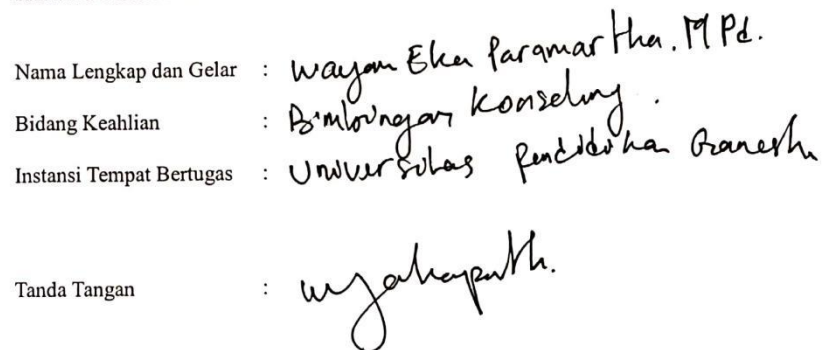 Nama Lengkap dan Gelar : Wayan Eka Paramartha. M Pd.
Bidang Keahlian : Bimbingan Konseling.
Instansi Tempat Bertugas : Universitas Pendidikan Ganesha
Tanda Tangan :